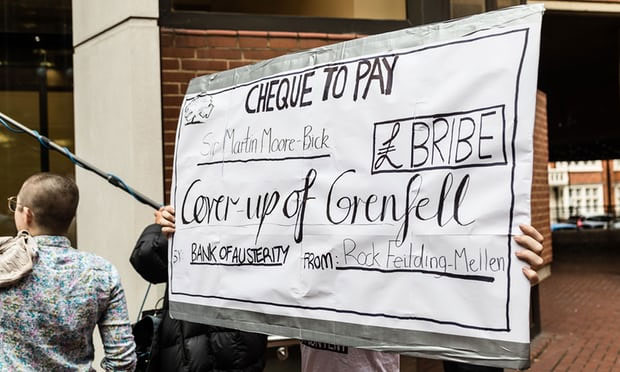 CHEQUE TO PAY
Sir Martin Moore-Bick
£ BRIBE
Cover-up of Grenfell
BY: BANK OF AUSTERITY
FROM: Rock Feilding-Mellen